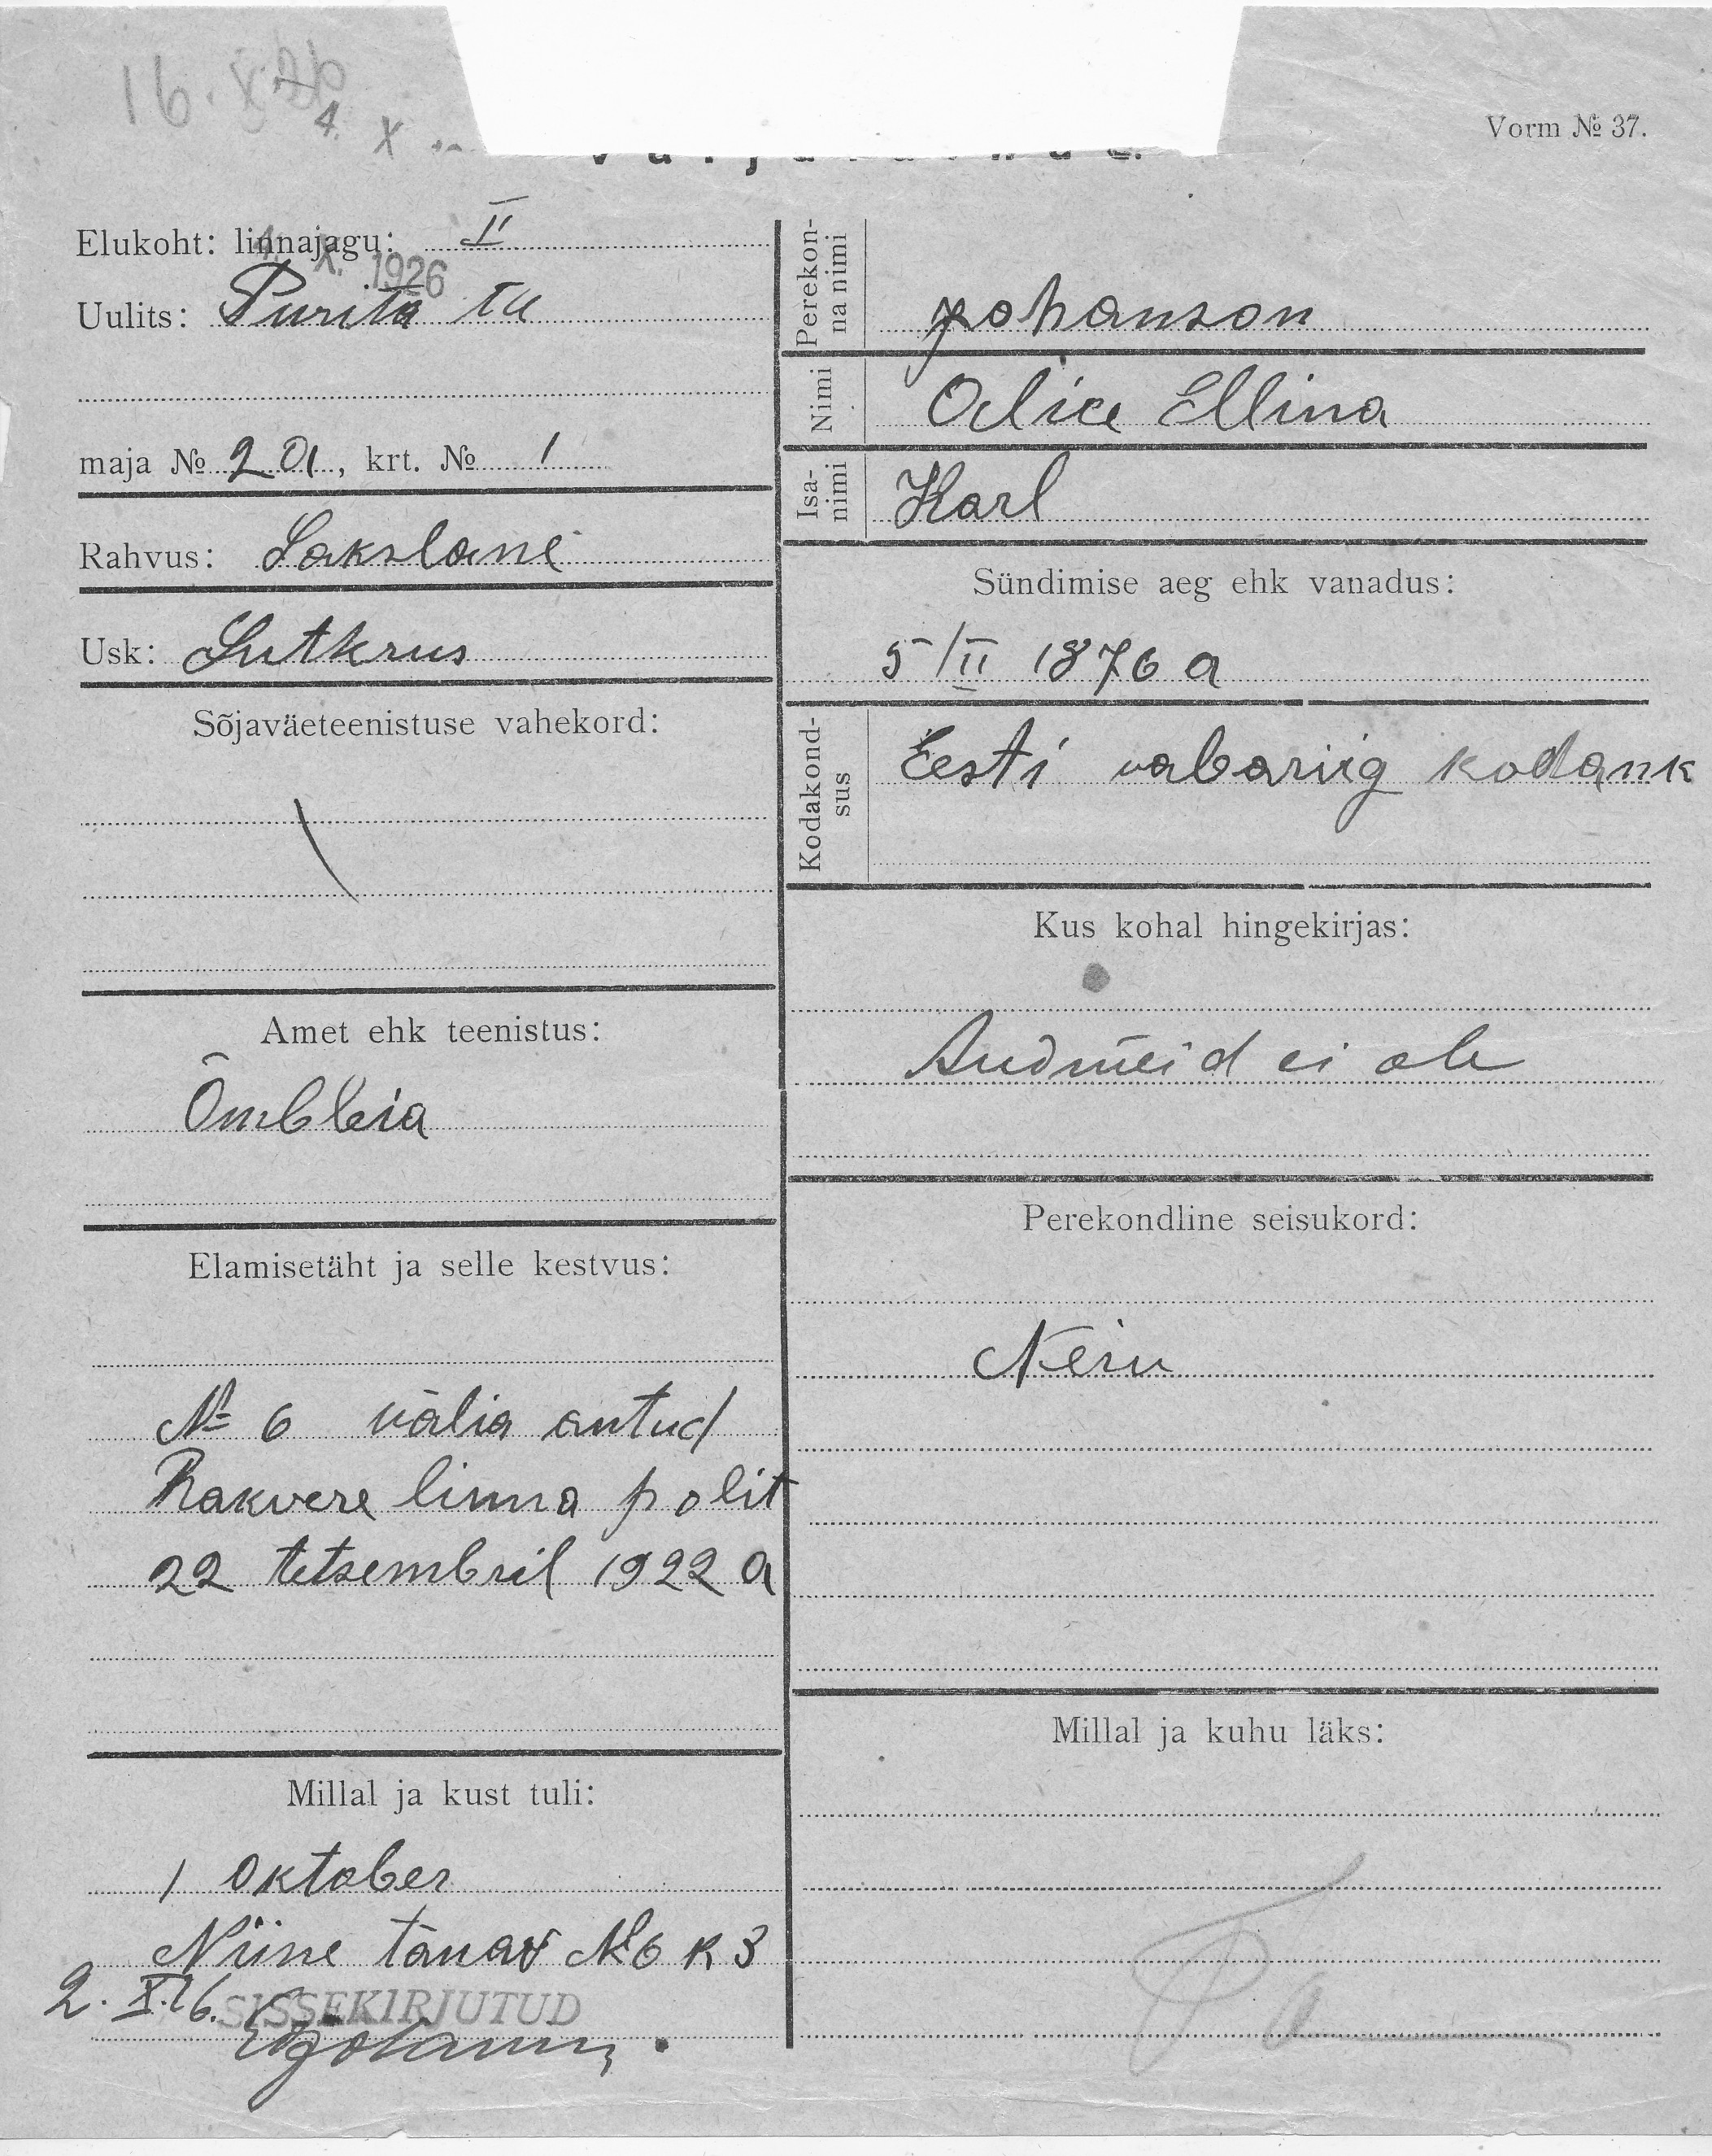 16. X 26
4. X
Vorm № 37.
Elukoht: linnajagu: II
4. X. 1926
Uulits: Purita tä
maja № 2 a, krt. № 1
Rahvus: Sakslane
Usk: Lutkrus
Sõjaväeteenistuse vahekord:
Amet ehk teenistus:
Õmbleia
Elamisetäht ja selle kestvus:
№ 6 välia antud
Rakvere linna polit
22 tetsembril 1922 a
Millal ja kust tuli:
1 Oktober
Niine tänav № 6 K 3
2. X. 26.
SISSEKIRJUTUD
Perekonna nimi
Johanson
Nimi
Alice Ellina
Isanimi
Karl
Sündimise aeg ehk vanadus:
5/II 1876 a
Kodakondsus
Eesti vabariig kodank
Kus kohal hingekirjas:
Andmeid ei ole
Perekondline seisukord:
Neiu
Millal ja kuhu läks: